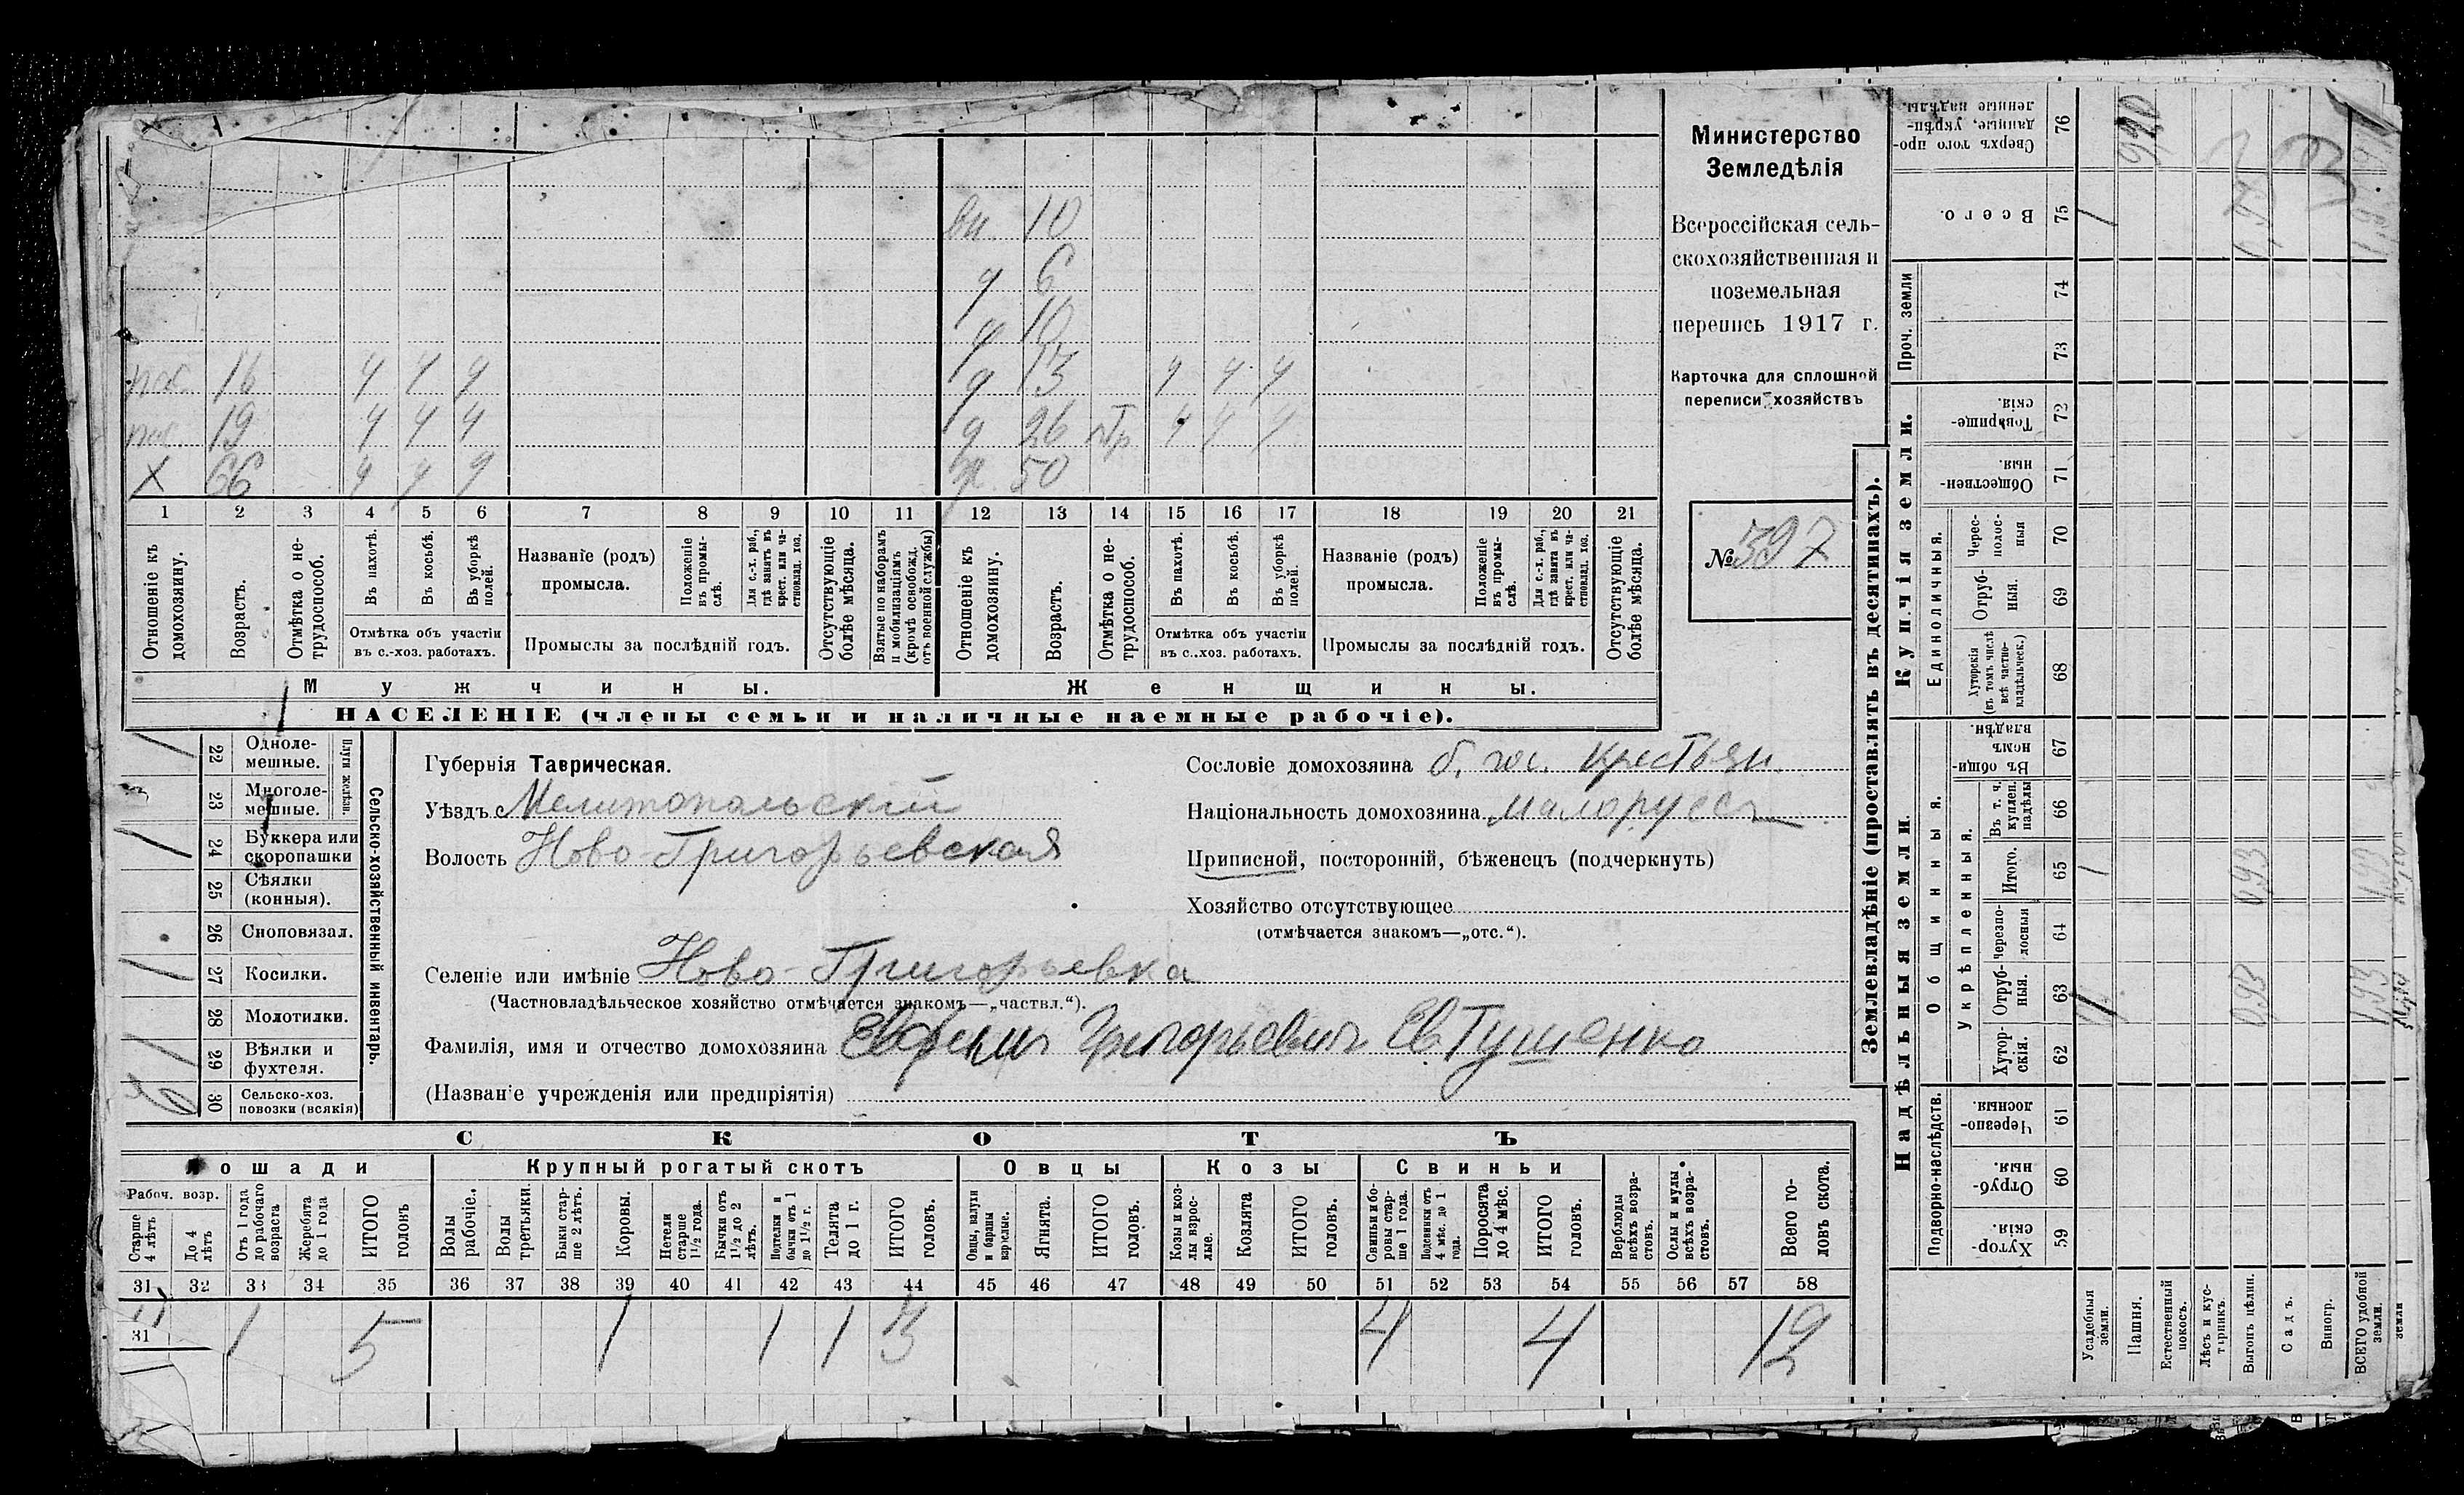 Министерство
Земледѣлія
Всероссійская сель-
скохозяйственная и
поземельная
перепись 1917 г.
Карточка для сплошной
переписи хозяйствъ
№ 597
вн. 10
9 6
9 10
пас. 16 9 9 9 9 13 9 9 9
пас. 19 9 9 9 9 26 9 9 9
X 66 9 9 9 ж. 50
1 2 3 4 5 6 7 8 9 10 11 12 13 14 15 16 17 18 19 20 21
Отношеніе къ домохозяину.
Возрастъ.
Отмѣтка о не-трудоспособ.
Въ пахотѣ.
Въ косьбѣ.
Въ уборкѣ полей.
Отмѣтка объ участіи
въ с.-хоз. работахъ.
Названіе (родъ)
промысла.
Положеніе въ промы-слѣ.
Для с.-х. раб., гдѣ занятъ въ крест. или ча-стновлад. хоз.
Промыслы за послѣдній годъ.
Отсутствующіе болѣе мѣсяца.
Взятые по наборамъ и мобилизаціямъ (кромѣ освобожд. отъ военной службы)
Отношеніе къ домохозяину.
Возрастъ.
Отмѣтка о не-трудоспособ.
Въ пахотѣ.
Въ косьбѣ.
Въ уборкѣ полей.
Отмѣтка объ участіи
въ с.-хоз. работахъ.
Названіе (родъ)
промысла.
Положеніе въ промы-слѣ.
Для с.-х. раб., гдѣ занята въ крест. или ча-стновлад. хоз.
Промыслы за послѣдній годъ.
Отсутствующіе болѣе мѣсяца.
Мужчины. Женщины.
НАСЕЛЕНІЕ (члены семьи и наличные наемные рабочіе).
Сельско-хозяйственный инвентарь.
Плуги желѣзн.
22 Одноле-мешные. 1
23 Многоле-мешные.
24 Буккера или скоропашки 1
25 Сѣялки (конныя).
26 Сноповязал.
27 Косилки. 1
28 Молотилки.
29 Вѣялки и фухтеля. 1
30 Сельско-хоз. повозки (всякія)
Губернія Таврическая.
Уѣздъ Мелитопольскій
Волость Ново-Григорьевская
Селеніе или имѣніе Ново-Григорьевка
(Частновладѣльческое хозяйство отмѣчается знакомъ—„частвл.“).
Фамилія, имя и отчество домохозяина Григорьевичъ Евтушенко
(Названіе учрежденія или предпріятія)
Сословіе домохозяина б. гос. крестьян.
Національность домохозяина малоруссъ
Приписной, посторонній, бѣженецъ (подчеркнуть)
Хозяйство отсутствующее
(отмѣчается знакомъ—„отс.“).
СКОТЪ
Лошади Крупный рогатый скотъ Овцы Козы Свиньи
Рабоч. возр.
Старше 4 лѣтъ
До 4 лѣтъ
Отъ 1 года до рабочаго возраста
Жеребята до 1 года
ИТОГО головъ
Волы рабочіе.
Волы третьяки.
Быки стар-ше 2 лѣтъ.
Коровы.
Нетели старше 1½ года.
Бычки отъ 1½ до 2 лѣтъ.
Подтелки и бычки отъ 1 до 1½ г.
Телята до 1 г.
ИТОГО головъ.
Овцы, валухи и бараны взрослые.
Ягнята.
ИТОГО головъ.
Козы и коз-лы взрос-лые.
Козлята
ИТОГО головъ.
Свиньи и бо-ровы стар-ше 1 года.
Подсвинки отъ 4 мѣс. до 1 года.
Поросята до 4 мѣс.
ИТОГО головъ.
Верблюды всѣхъ возра-стовъ.
Ослы и мулы всѣхъ возра-стовъ.
Всего го-ловъ скота.
31 32 33 34 35 36 37 38 39 40 41 42 43 44 45 46 47 48 49 50 51 52 53 54 55 56 57 58
1 5 1 1 1 3 4 4 12
31
Землевладѣніе (проставлять въ десятинахъ).
Надѣльныя земли. Купчія земли. Проч. земли
Подворно-наслѣдств. Общинныя. Единоличныя.
Укрѣпленныя.
Хутор-скія. 59
Отруб-ныя. 60
Черезпо-лосныя. 61
Хутор-скія. 62
Отруб-ныя. 63
Черезпо-лосныя 64
Итого. 65
Въ т. ч. куплен. надѣлы 66
Въ общи-номъ владѣн. 67
Хуторскія (въ томъ числѣ всѣ частно-владѣльческ.) 68
Отруб-ныя. 69
Черес-полос-ныя 70
Обществен-ныя. 71
Товарище-скія. 72
73
74
Всего. 75
Сверхъ того про-данные, укрѣп-ленные надѣлы. 76
Усадебныя земли. 1 1
Пашня. 920
Естественный покосъ.
Лѣсъ и кус-тарникъ.
Выгонъ цѣлин. 093 093
Садъ.
Виногр.
ВСЕГО удобной земли. 193 193
земли